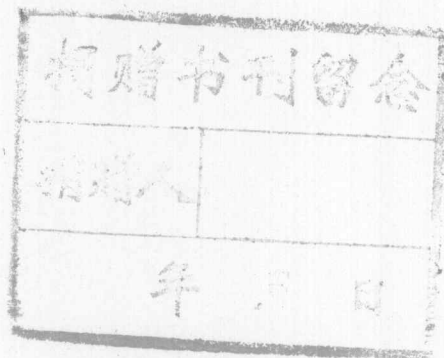 捐赠书刊留念
捐赠人
年 月 日